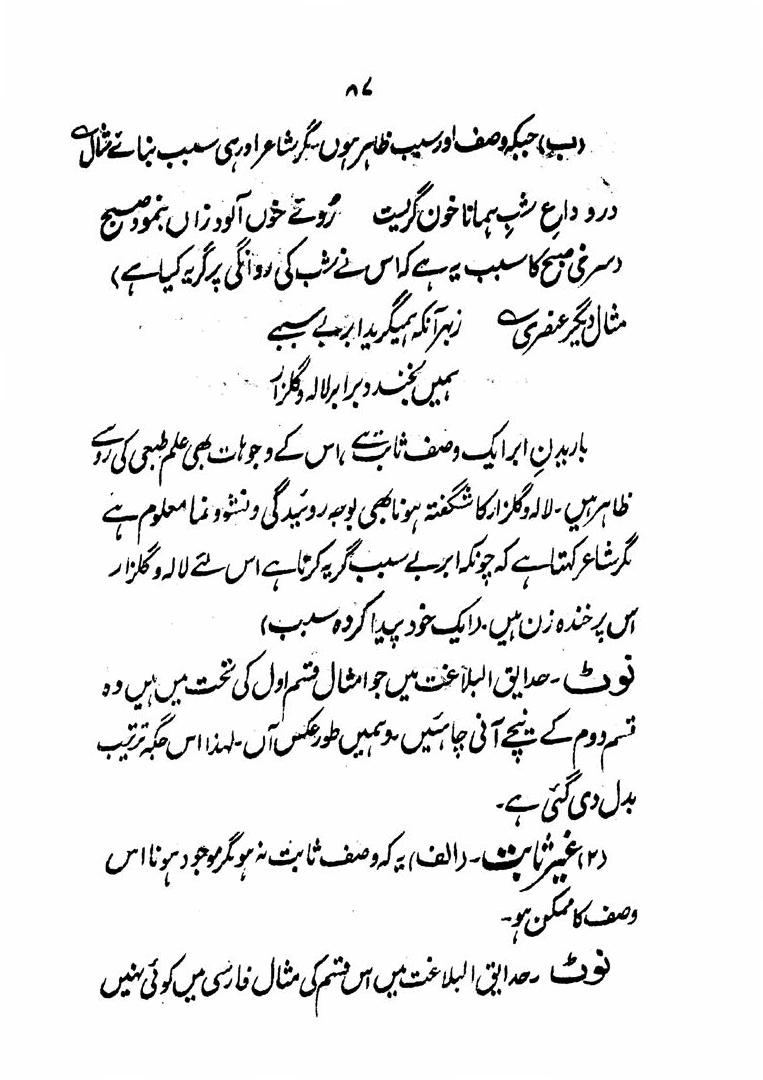 ۸۷
(ب) جبکہ وصف اور سبب ظاہر ہوں۔ مگر شاعر اور ہی سبب بنائے مثال
در وداعِ شب ہمانا خون گریست روُئے خوں آلود زاں بنمود صبح
(سرخی صبح کا سبب یہ ہے کہ اس نے شب کی روانگی پر گریہ کیا ہے)
مثال دیگر عنصری زہر آنکہ ہمیگرید ابر بے سببے
ہمیں بخندد برابر لالہ و گلزار
باریدنِ ابر ایک وصف ثابت ہے، اس کے وجوہات بھی علم طبعی کی رو سے
ظاہر ہیں۔ لالہ و گلزار کا شگفتہ ہونا بھی بوجہ روئیدگی و نشو و نما معلوم ہے
مگر شاعر کہتا ہے کہ چونکہ ابر بے سبب گریہ کرتا ہے اس لئے لالہ و گلزار
اس پر خندہ زن ہیں۔ (ایک خود پیدا کردہ سبب)
نوٹ۔ حدایق البلاغت میں جو امثال قسم اول کی تحت میں ہیں وہ
قسم دوم کے نیچے آنی چاہئیں۔ وہمیں طور عکس آں۔ لہذا اس جگہ ترتیب
بدل دی گئی ہے۔
(۲) غیر ثابت۔ (الف) یہ کہ وصف ثابت نہ ہو مگر موجود ہونا اس
وصف کا ممکن ہو۔
نوٹ۔ حدایق البلاغت میں اس قسم کی مثال فارسی میں کوئی نہیں